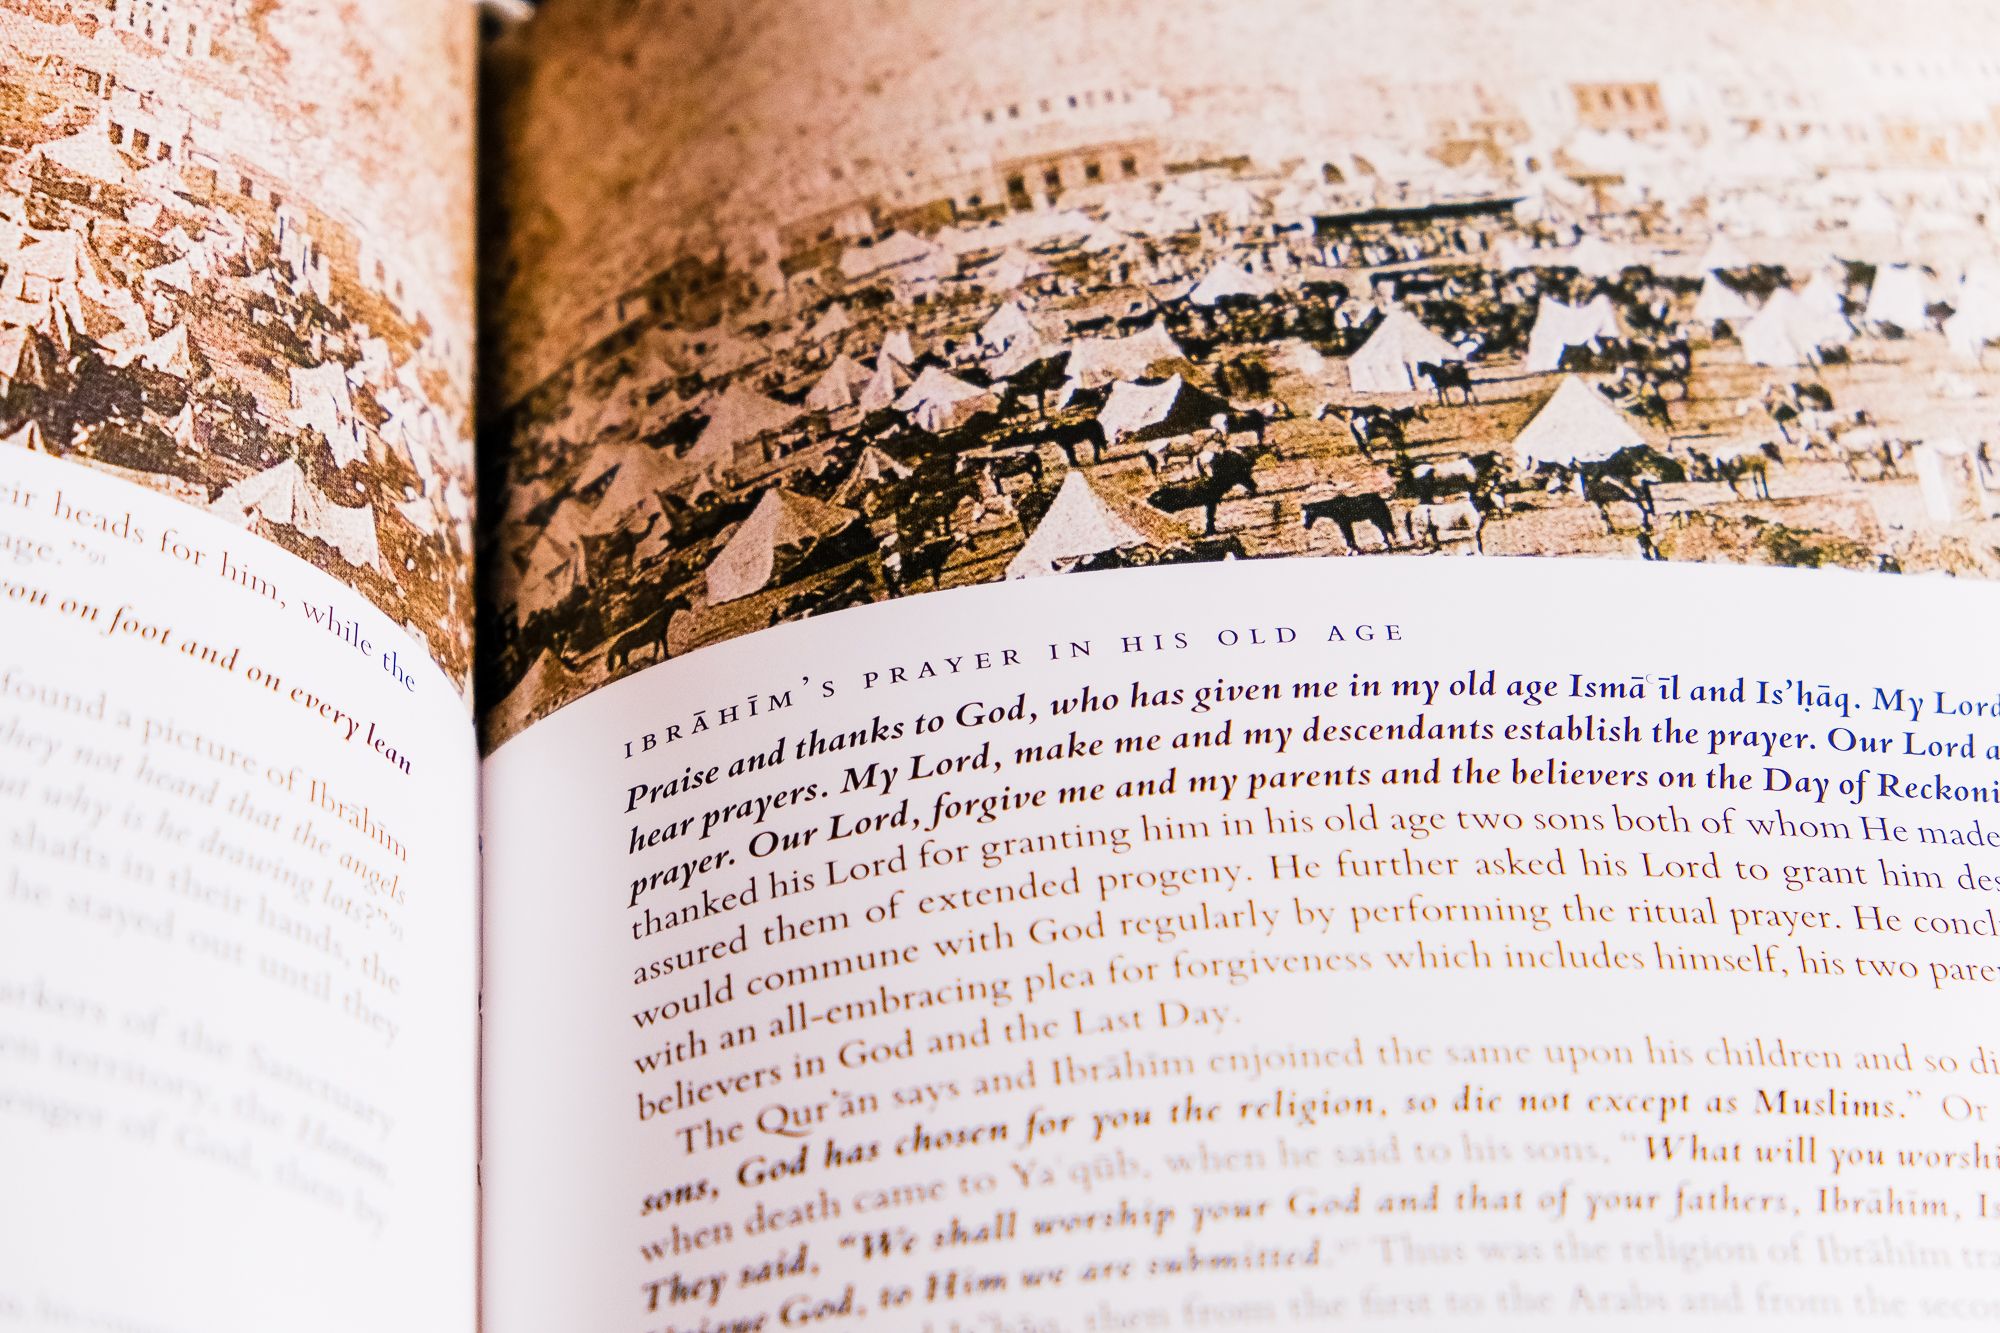 eir heads for him, while the
age."⁹¹
you on foot and on every lean
found a picture of Ibrāhīm
they not heard that the angels
at why is he drawing lots?"⁹³
shafts in their hands, the
he stayed out until they
arkers of the Sanctuary
on territory, the Haram.
enger of God, then by
IBRĀHĪM'S PRAYER IN HIS OLD AGE
Praise and thanks to God, who has given me in my old age Ismāʿīl and Is'ḥāq. My Lord
hear prayers. My Lord, make me and my descendants establish the prayer. Our Lord a
prayer. Our Lord, forgive me and my parents and the believers on the Day of Reckoni
thanked his Lord for granting him in his old age two sons both of whom He made
assured them of extended progeny. He further asked his Lord to grant him des
would commune with God regularly by performing the ritual prayer. He concl
with an all-embracing plea for forgiveness which includes himself, his two pare
believers in God and the Last Day.
The Qur'ān says and Ibrāhīm enjoined the same upon his children and so di
sons, God has chosen for you the religion, so die not except as Muslims." Or
when death came to Yaʿqūb, when he said to his sons, "What will you worshi
They said, "We shall worship your God and that of your fathers, Ibrāhīm, Is
God, to Him we are submitted." Thus was the religion of Ibrāhīm tra
then from the first to the Arabs and from the seco